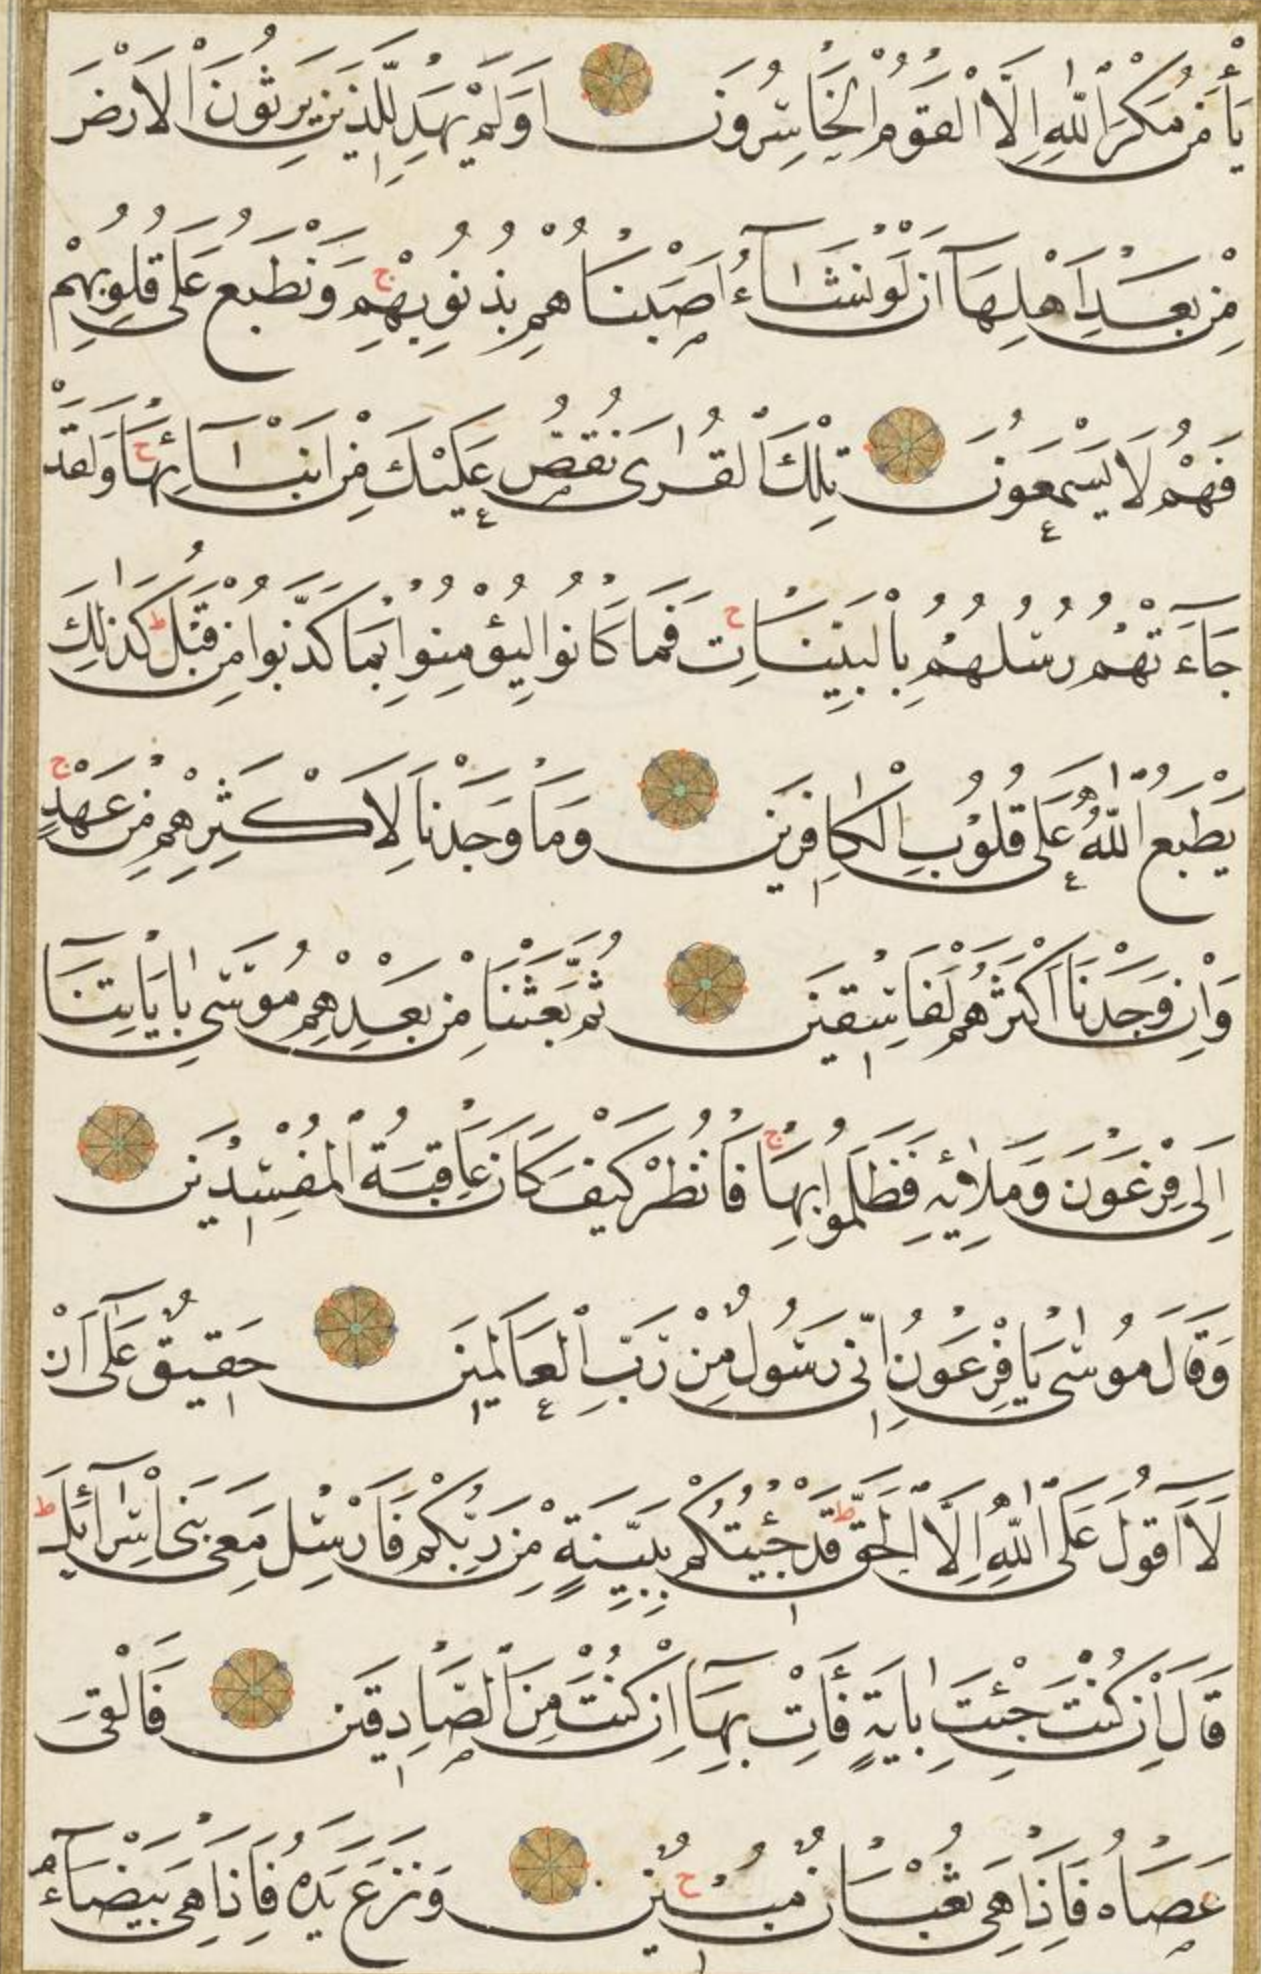 يَأْمَنُ مَكْرَ اللّٰهِ اِلَّا الْقَوْمُ الْخَاسِرُونَ اَوَلَمْ يَهْدِ لِلَّذِينَ يَرِثُونَ الْاَرْضَ
مِنْ بَعْدِ اَهْلِهَآ اَنْ لَوْ نَشَآءُ اَصَبْنَاهُمْ بِذُنُوبِهِمْ ج وَنَطْبَعُ عَلٰى قُلُوبِهِمْ
فَهُمْ لَا يَسْمَعُونَ تِلْكَ الْقُرٰى نَقُصُّ عَلَيْكَ مِنْ اَنْبَآئِهَا ج وَلَقَدْ
جَآءَتْهُمْ رُسُلُهُمْ بِالْبَيِّنَاتِ ج فَمَا كَانُوا لِيُؤْمِنُوا بِمَا كَذَّبُوا مِنْ قَبْلُ ط كَذٰلِكَ
يَطْبَعُ اللّٰهُ عَلٰى قُلُوبِ الْكَافِرِينَ وَمَا وَجَدْنَا لِاَكْثَرِهِمْ مِنْ عَهْدٍ ج
وَاِنْ وَجَدْنَا اَكْثَرَهُمْ لَفَاسِقِينَ ثُمَّ بَعَثْنَا مِنْ بَعْدِهِمْ مُوسٰى بِاٰيَاتِنَآ
اِلٰى فِرْعَوْنَ وَمَلَا۬ئِهٖ فَظَلَمُوا بِهَا ج فَانْظُرْ كَيْفَ كَانَ عَاقِبَةُ الْمُفْسِدِينَ
وَقَالَ مُوسٰى يَا فِرْعَوْنُ اِنِّي رَسُولٌ مِنْ رَبِّ الْعَالَمِينَ حَقِيقٌ عَلٰٓى اَنْ
لَآ اَقُولَ عَلَى اللّٰهِ اِلَّا الْحَقَّ ط قَدْ جِئْتُكُمْ بِبَيِّنَةٍ مِنْ رَبِّكُمْ فَاَرْسِلْ مَعِيَ بَنِي اِسْرَآئِلَ ط
قَالَ اِنْ كُنْتَ جِئْتَ بِاٰيَةٍ فَأْتِ بِهَآ اِنْ كُنْتَ مِنَ الصَّادِقِينَ فَاَلْقٰى
عَصَاهُ فَاِذَا هِيَ ثُعْبَانٌ مُبِينٌ ج وَنَزَعَ يَدَهُ فَاِذَا هِيَ بَيْضَآءُ